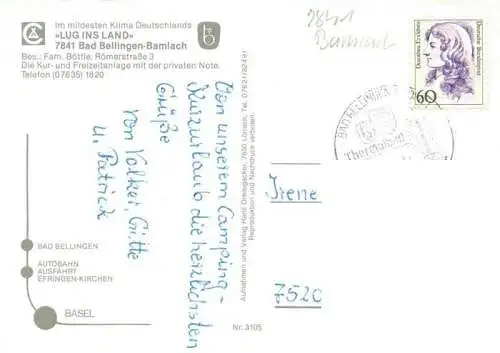 Im mildesten Klima Deutschlands
»LUG INS LAND«
7841 Bad Bellingen-Bamlach
Bes.: Fam. Böttle, Römerstraße 3
Die Kur- und Freizeitanlage mit der privaten Note.
Telefon (07635) 1820
BAD BELLINGEN
AUTOBAHN
AUSFAHRT
EFRINGEN-KIRCHEN
BASEL
Von unserem Camping-
Kurzurlaub die herzlichsten
Grüße
von Volker, Gitte
u. Patrick
Aufnahmen und Verlag Hansl Dreisigacker, 7850 Lörrach, Tel. 07621/82491
Reproduktion und Nachdruck verboten.
Nr. 3105
7841
Bamlach
60
Deutsche Bundespost
BAD BELLINGEN
Thermalbad
Irene
7520